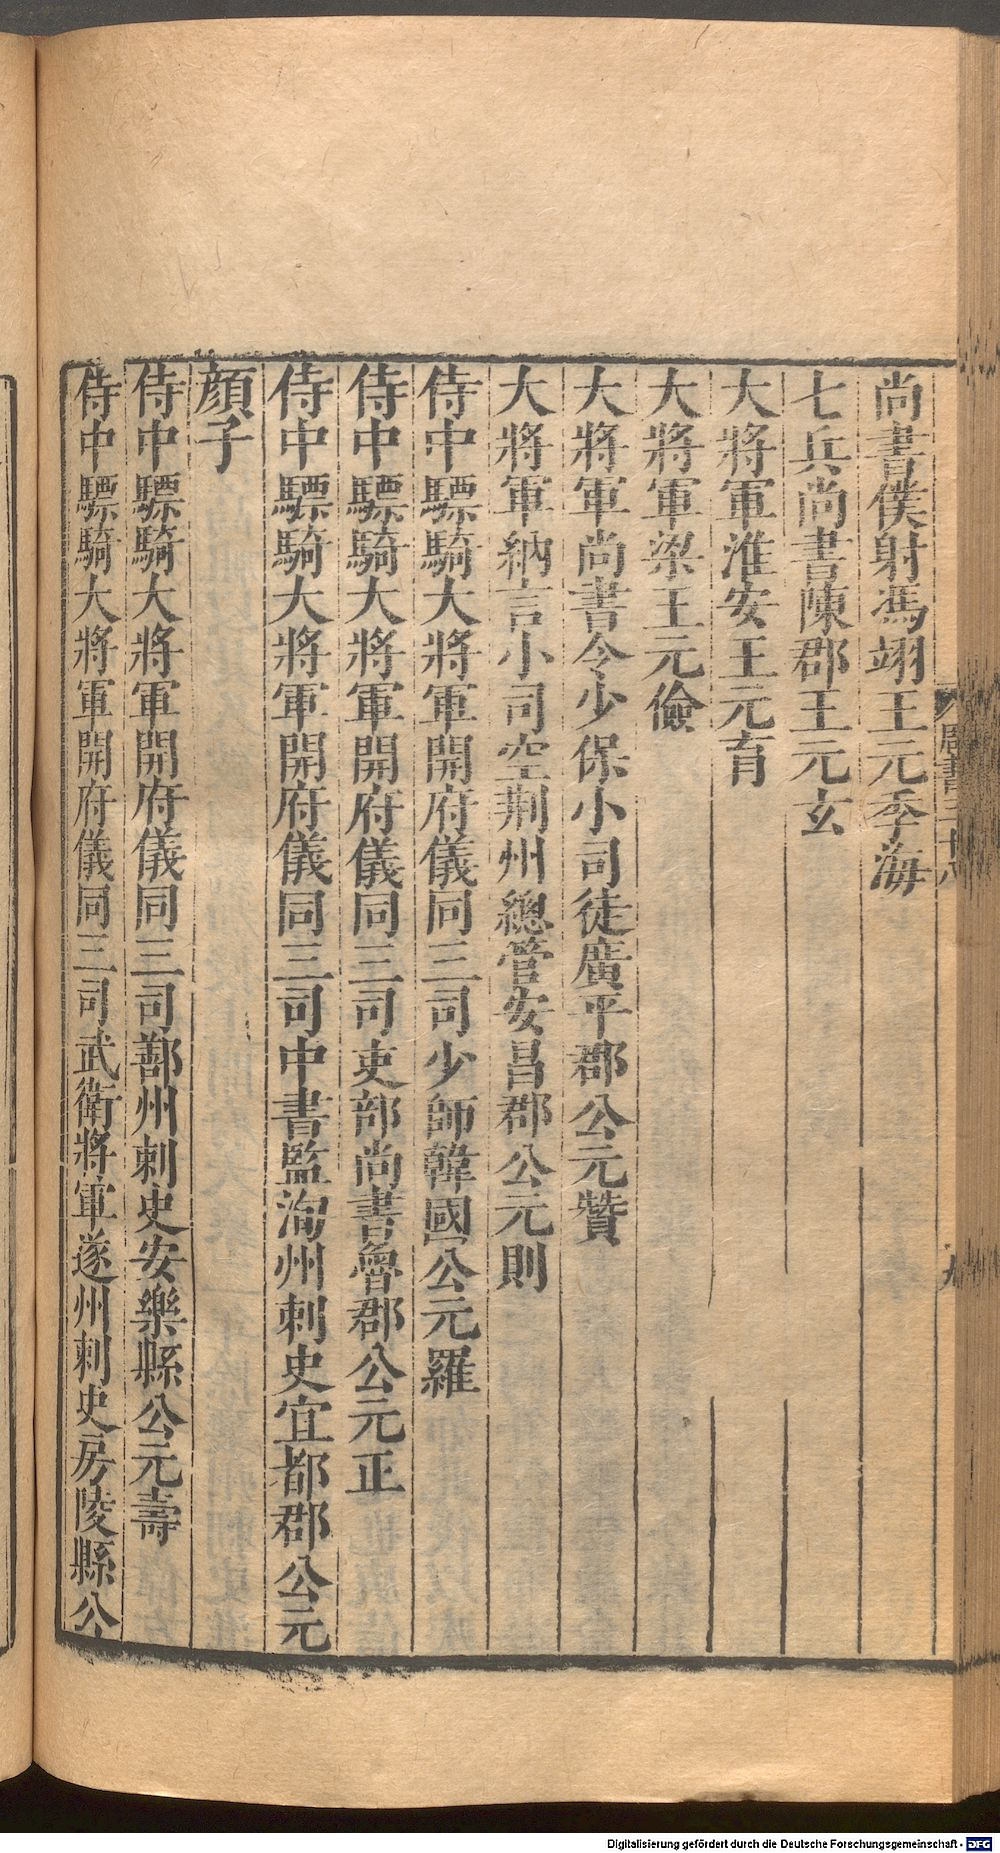 尚書僕射馮翊王元季海
七兵尚書陳郡王元玄
大將軍淮安王元育
大將軍梁王元儉
大將軍尚書令少保小司徒廣平郡公元贊
大將軍納言小司空荆州總管安昌郡公元則
侍中驃騎大將軍開府儀同三司少師韓國公元羅
侍中驃騎大將軍開府儀同三司吏部尚書魯郡公元正
侍中驃騎大將軍開府儀同三司中書監洵州刺史宜都郡公元
顔子
侍中驃騎大將軍開府儀同三司鄯州刺史安樂縣公元壽
侍中驃騎大將軍開府儀同三司武衛將軍遂州刺史房陵縣公
Digitalisierung gefördert durch die Deutsche Forschungsgemeinschaft - DFG